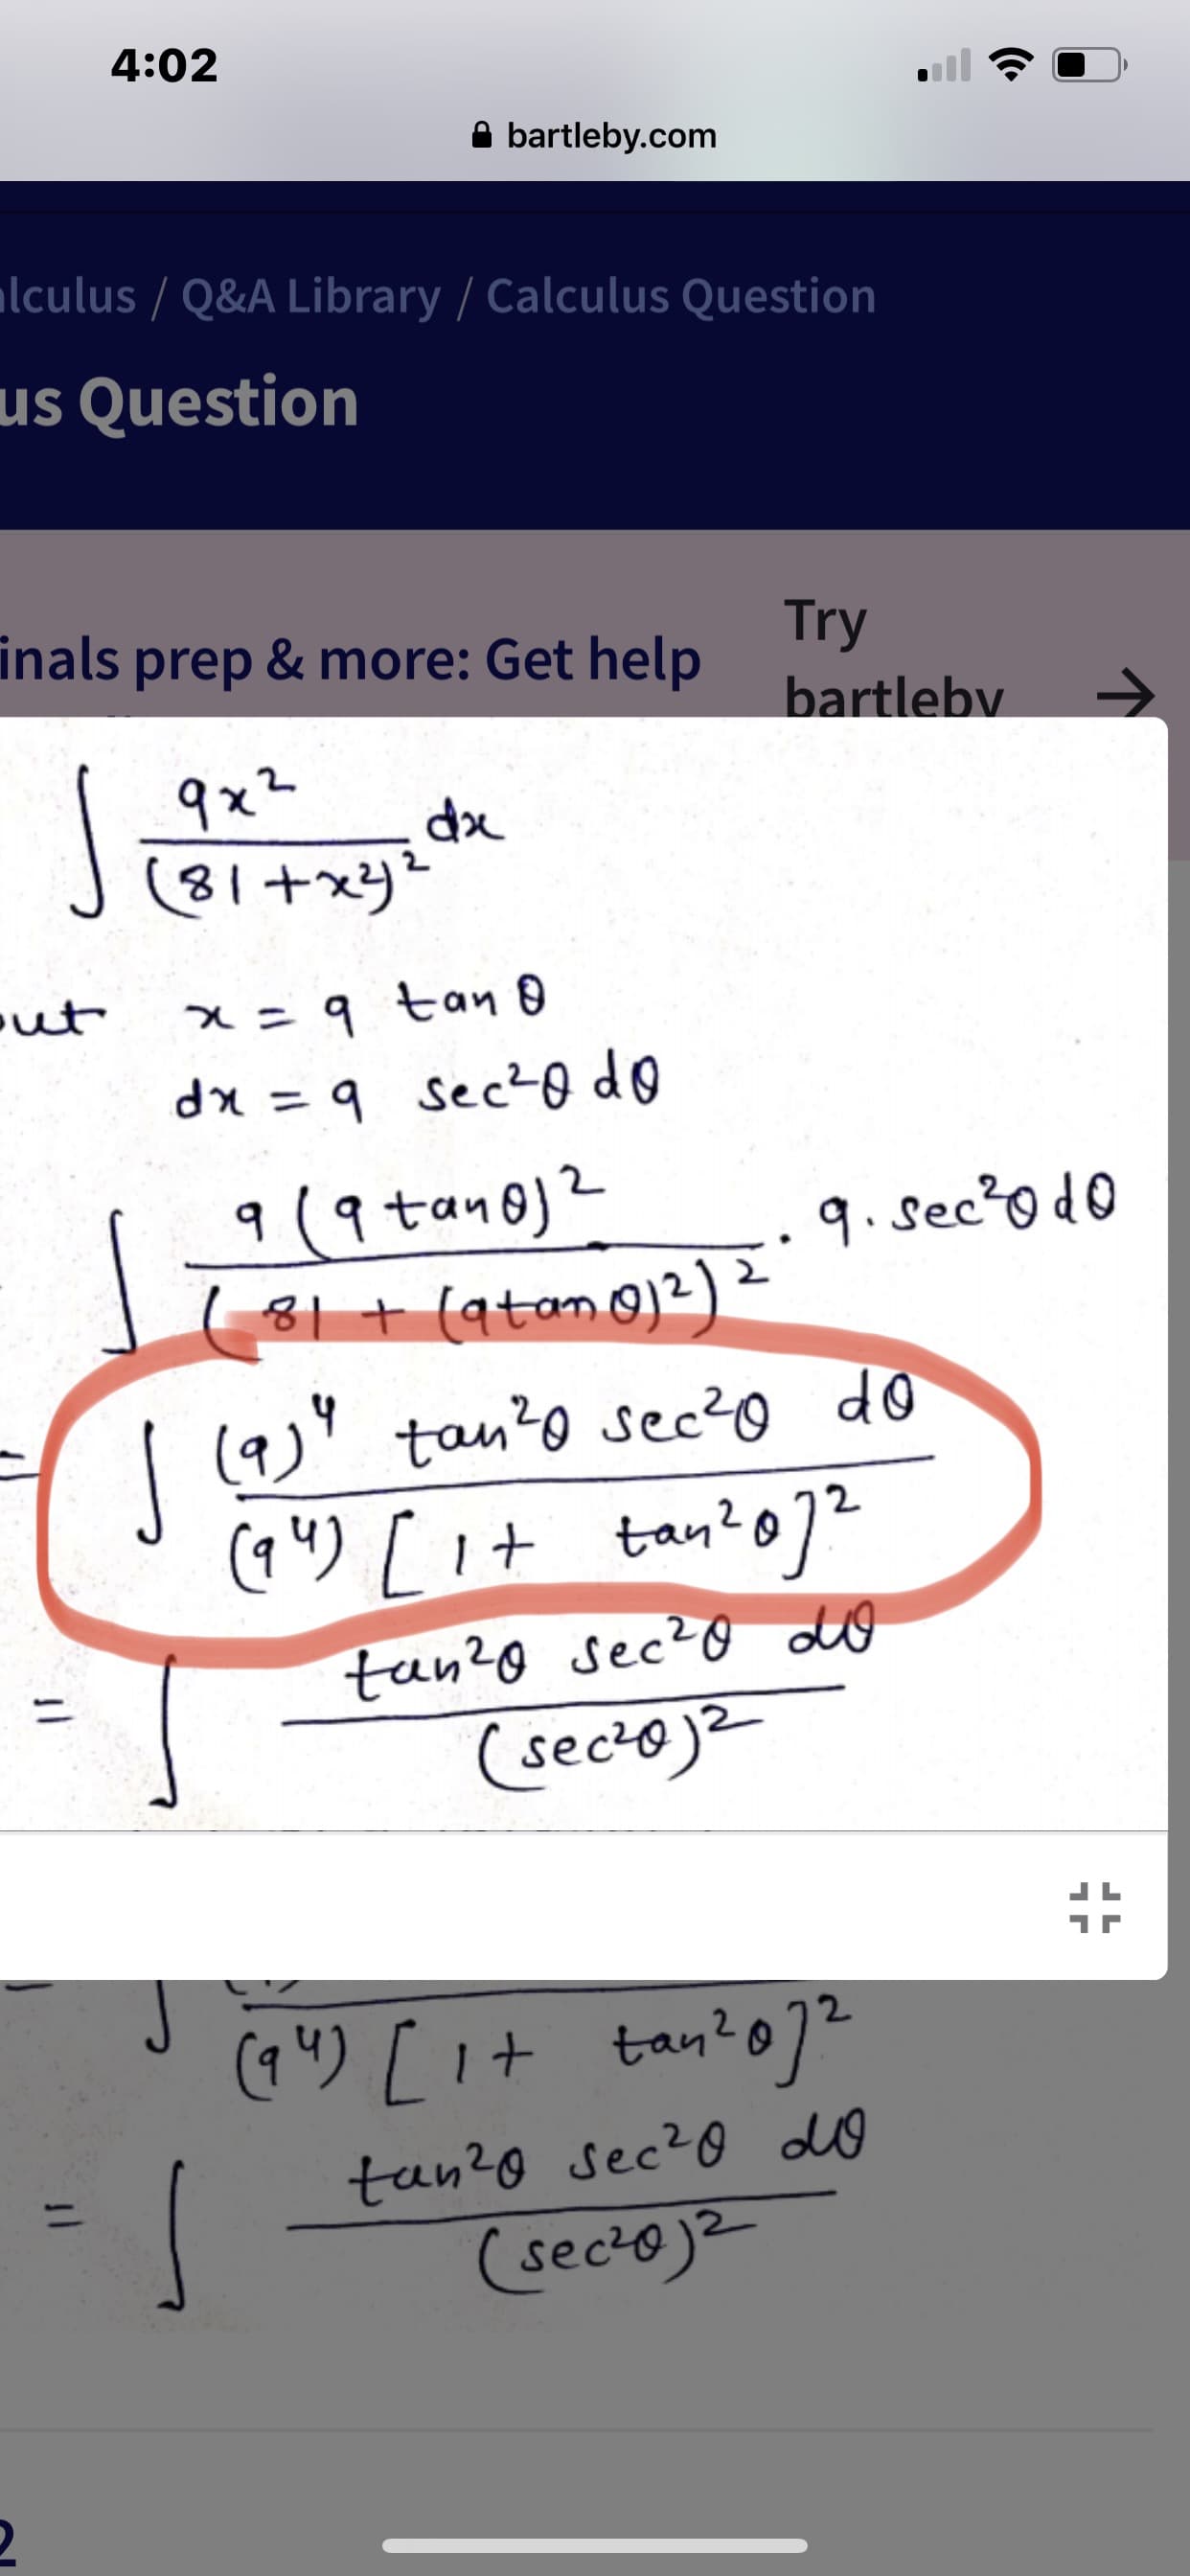 4:02
bartleby.com
alculus / Q&A Library / Calculus Question
us Question
inals prep & more: Get help
Try
bartleby →
∫ 9x² / (81+x²)² dx
put x = 9 tan θ
dx = 9 sec²θ dθ
∫ 9(9 tanθ)² / (81 + (9tanθ)²)² · 9. sec²θ dθ
= ∫ (9)⁴ tan²θ sec²θ dθ / (9⁴) [1 + tan²θ]²
= ∫ tan²θ sec²θ dθ / (sec²θ)²
(9⁴) [1 + tan²θ]²
= ∫ tan²θ sec²θ dθ / (sec²θ)²
2